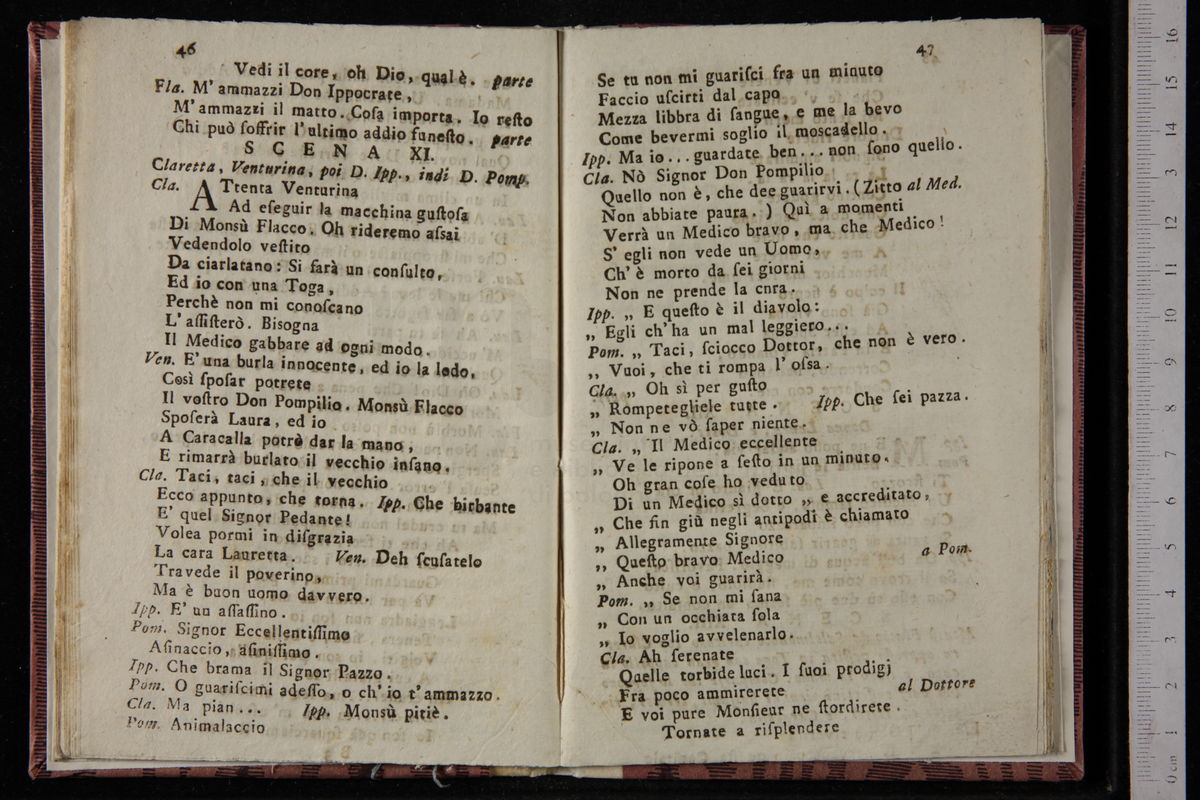 46
Vedi il core, oh Dio, qual è. parte
Fla. M' ammazzi Don Ippocrate,
M' ammazzi il matto. Coſa importa. Io reſto
Chi può ſoffrir l' ultimo addio funeſto. parte
S C E N A XI.
Claretta, Venturina, poi D. Ipp., indi D. Pomp.
Cla. ATtenta Venturina
Ad eſeguir la macchina guſtoſa
Di Monsù Flacco. Oh rideremo aſsai
Vedendolo veſtito
Da ciarlatano: Si farà un conſulto,
Ed io con una Toga,
Perchè non mi conoſcano
L' aſſiſterò. Biſogna
Il Medico gabbare ad ogni modo.
Ven. E' una burla innocente, ed io la lodo,
Così ſpoſar potrete
Il voſtro Don Pompilio. Monsù Flacco
Spoſerà Laura, ed io
A Caracalla potrò dar la mano,
E rimarrà burlato il vecchio inſano.
Cla. Taci, taci, che il vecchio
Ecco appunto, che torna. Ipp. Che birbante
E' quel Signor Pedante!
Volea pormi in diſgrazia
La cara Lauretta. Ven. Deh ſcuſatelo
Travede il poverino,
Ma è buon uomo davvero.
Ipp. E' un aſſaſſino.
Pom. Signor Eccellentiſſimo
Aſinaccio, aſiniſſimo.
Ipp. Che brama il Signor Pazzo.
Pom. O guariſcimi adeſſo, o ch' io t' ammazzo.
Cla. Ma pian... Ipp. Monsù pitiè.
Pom. Animalaccio
47
Se tu non mi guariſci fra un minuto
Faccio uſcirti dal capo
Mezza libbra di ſangue, e me la bevo
Come bevermi soglio il moscadello.
Ipp. Ma io... guardate ben... non ſono quello.
Cla. Nò Signor Don Pompilio
Quello non è, che dee guarirvi. (Zitto al Med.
Non abbiate paura.) Quì a momenti
Verrà un Medico bravo, ma che Medico!
S' egli non vede un Uomo,
Ch' è morto da ſei giorni
Non ne prende la cnra.
Ipp. „ E queſto è il diavolo:
„ Egli ch' ha un mal leggiero...
Pom. „ Taci, ſciocco Dottor, che non è vero.
„ Vuoi, che ti rompa l' oſsa.
Cla. „ Oh sì per guſto
„ Rompetegliele tutte. Ipp. Che ſei pazza.
„ Non ne vò ſaper niente.
Cla. „ Il Medico eccellente
„ Ve le ripone a ſeſto in un minuto.
Oh gran coſe ho veduto
Di un Medico sì dotto „ e accreditato,
„ Che ſin giù negli antipodi è chiamato
„ Allegramente Signore
„ Queſto bravo Medico a Pom.
„ Anche voi guarirà.
Pom. „ Se non mi ſana
„ Con un occhiata ſola
„ Io voglio avvelenarlo.
Cla. Ah ſerenate
Quelle torbide luci. I ſuoi prodigj
Fra poco ammirerete al Dottore
E voi pure Monſieur ne ſtordirete.
Tornate a riſplendere